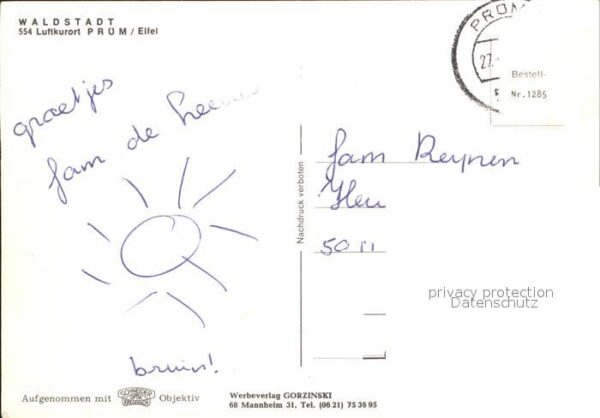 WALDSTADT
554 Luftkurort PRÜM / Eifel
groetjes
fam de
bruin!
Aufgenommen mit
SCHNEIDER
KREUZNACH
Objektiv
PRÜM
27.
Bestell-
Nr. 1285
Nachdruck verboten
fam Reynen
50
privacy protection
Datenschutz
Werbeverlag GORZINSKI
68 Mannheim 31, Tel. (06 21) 75 35 95